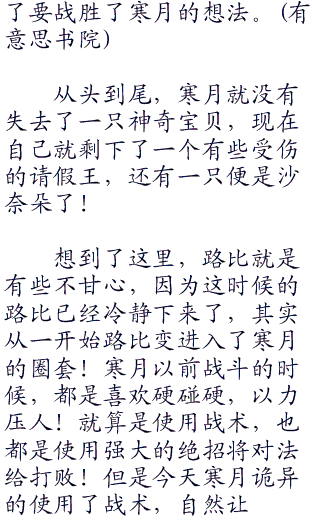 了要战胜了寒月的想法。(有
意思书院)
从头到尾，寒月就没有
失去了一只神奇宝贝，现在
自己就剩下了一个有些受伤
的请假王，还有一只便是沙
奈朵了！
想到了这里，路比就是
有些不甘心，因为这时候的
路比已经冷静下来了，其实
从一开始路比变进入了寒月
的圈套！寒月以前战斗的时
候，都是喜欢硬碰硬，以力
压人！就算是使用战术，也
都是使用强大的绝招将对法
给打败！但是今天寒月诡异
的使用了战术，自然让